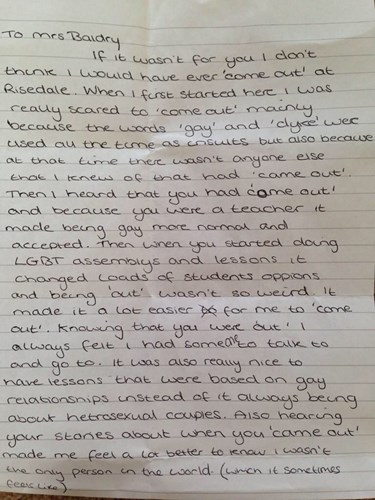 To Mrs Baldry
If it wasn't for you I don't
think I would have ever 'come out' at
Risedale. When I first started here I was
really scared to 'come out' mainly
because the words 'gay' and 'dyke' wer
used all the time as insults but also because
at that time there wasn't anyone else
that I knew of that had 'came out'.
Then I heard that you had 'come out'
and because you were a teacher it
made being gay more normal and
accepted. Then when you started doing
LGBT assemblys and lessons it
changed loads of students oppions
and being 'out' wasn't so weird. It
made it a lot easier for me to 'come
out'. Knowing that you were 'out' I
always felt I had someone to talk to
and go to. It was also really nice to
have lessons that were based on gay
relationships instead of it always being
about hetrosexual couples. Also hearing
your stories about when you 'came out'
made me feel a lot better to know I wasn't
the only person in the world. (which it sometimes
feels like).